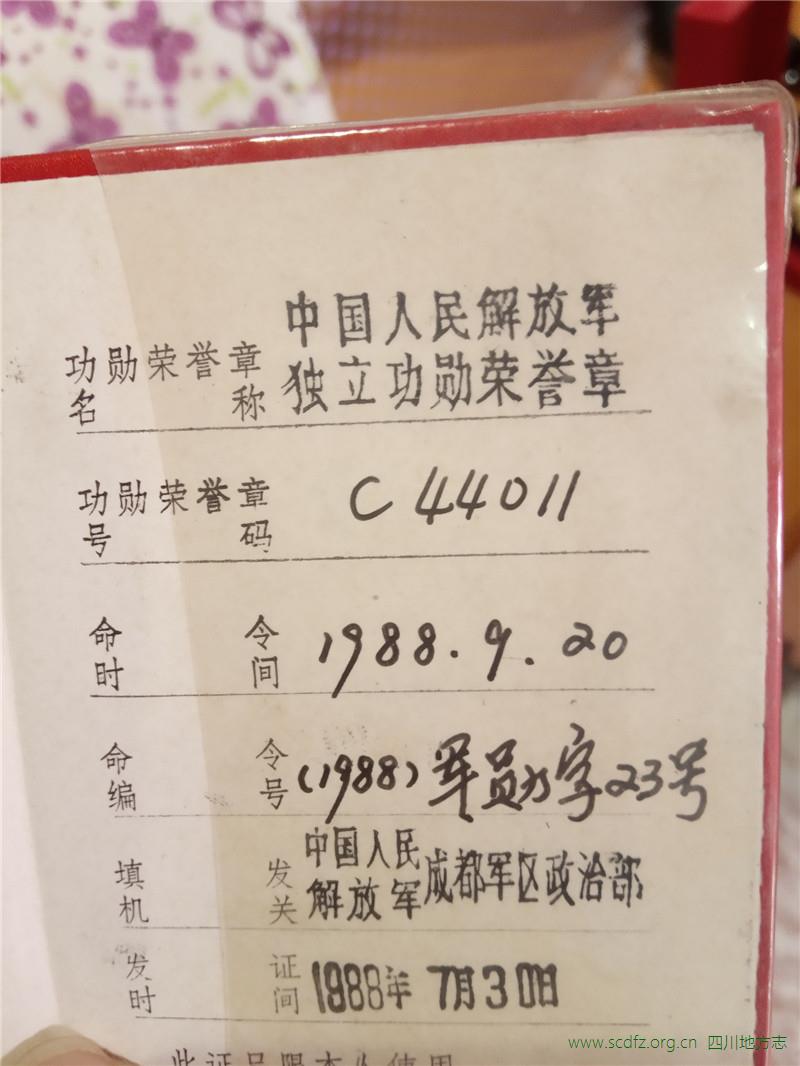 功勋荣誉章名称 中国人民解放军
独立功勋荣誉章
功勋荣誉章号码 C44011
命令时间 1988.9.20
命令编号 (1988)军勋字23号
填发机关 中国人民解放军成都军区政治部
发证时间 1988年7月30日
此证只限本人使用
www.scdfz.org.cn 四川地方志